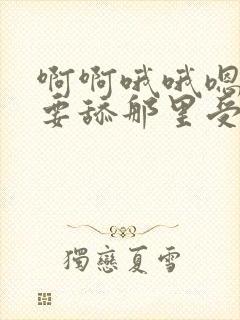 啊啊哦哦嗯
要舔那里受
獨戀夏雪